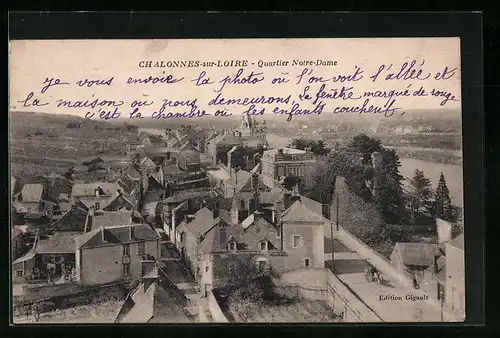 CHALONNES-sur-LOIRE - Quartier Notre-Dame
Je vous envoie la photo où l'on voit l'allée et
la maison où nous demeurons, la fenêtre marqué de rouge
c'est la chambre où les enfants couchent
Edition Gigault